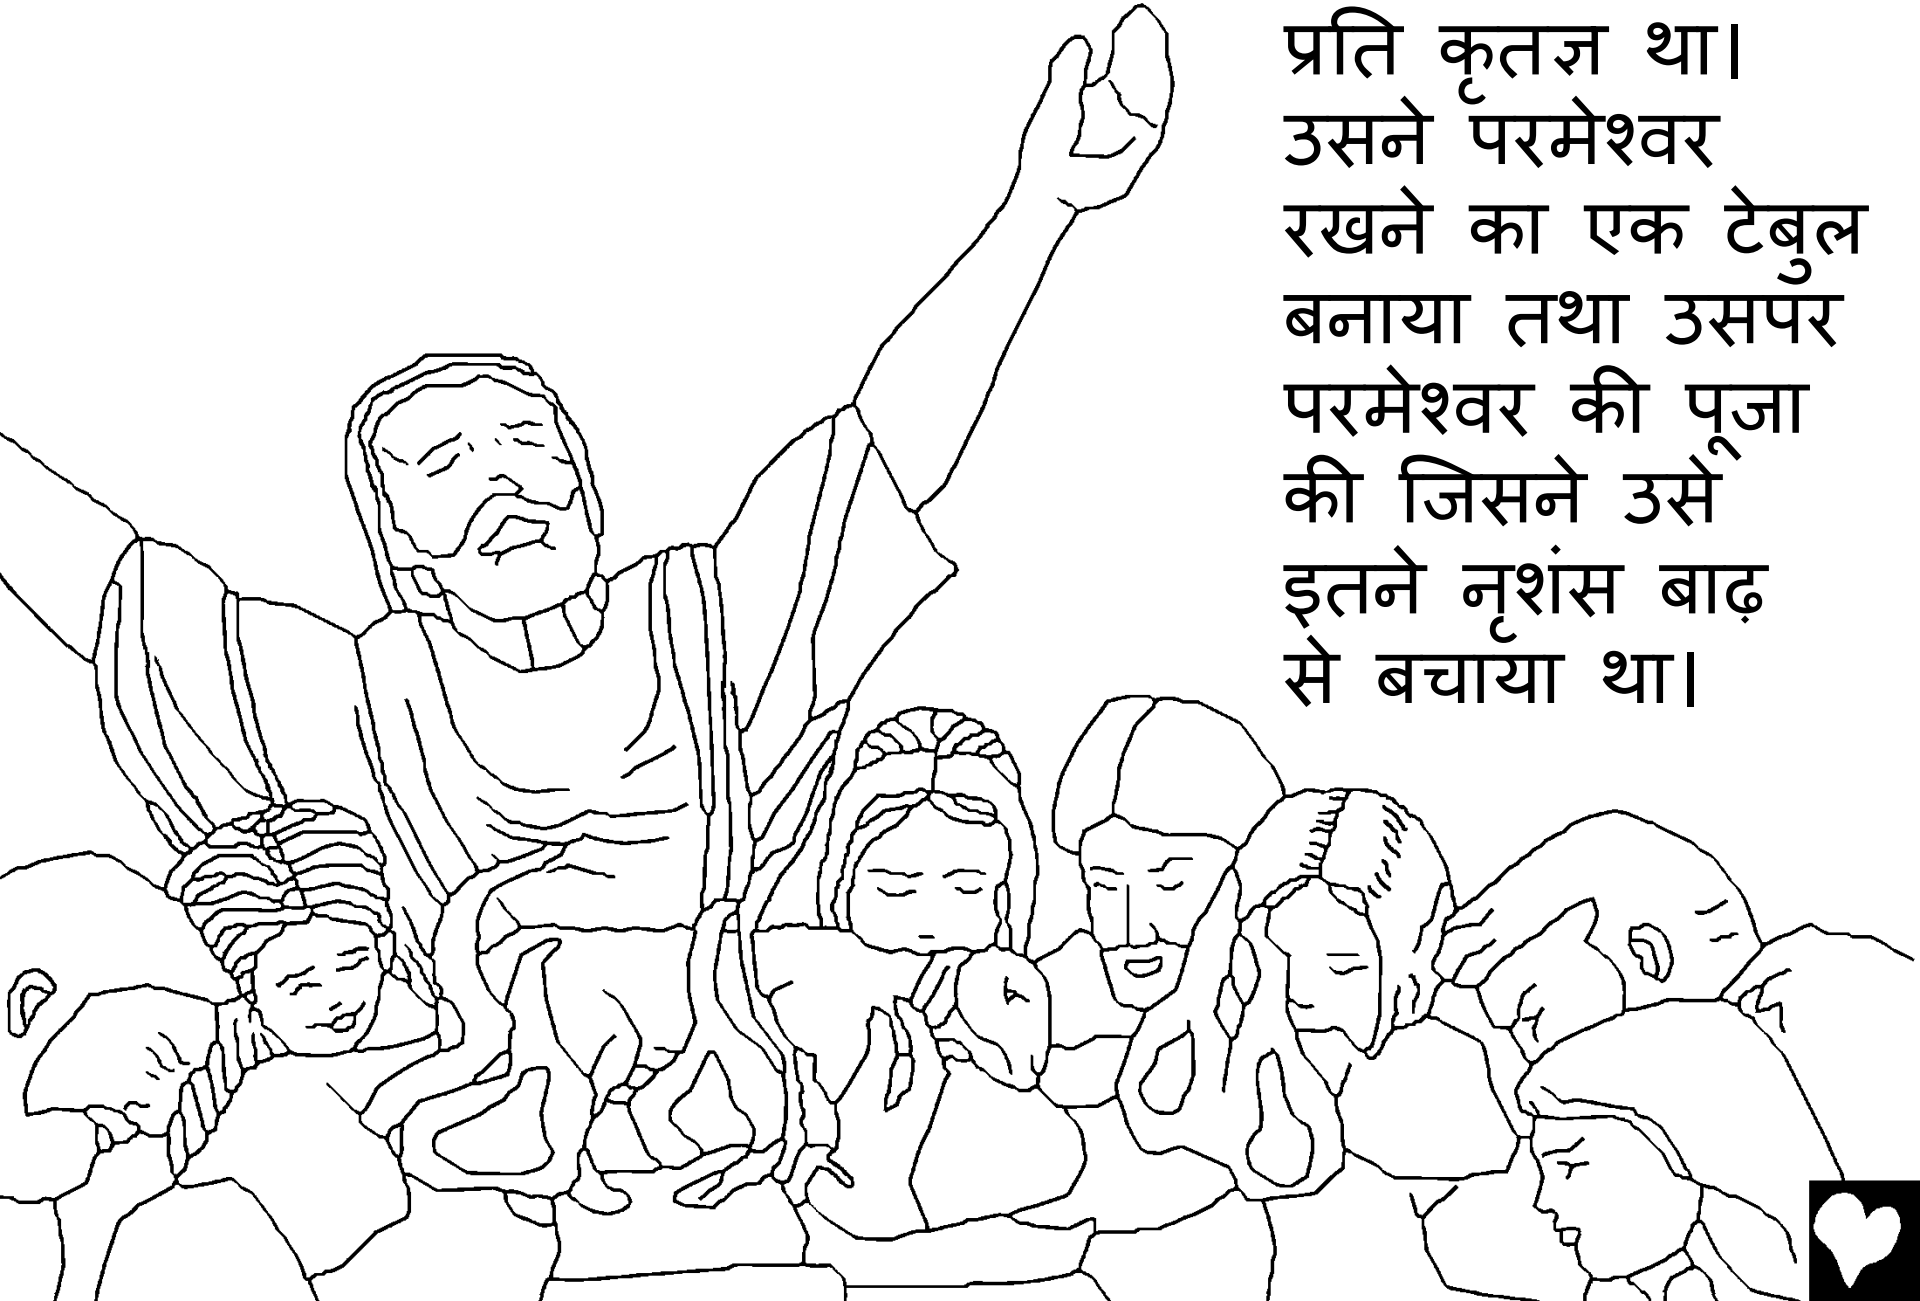 प्रति कृतज्ञ था।
उसने परमेश्वर
रखने का एक टेबुल
बनाया तथा उसपर
परमेश्वर की पूजा
की जिसने उसे
इतने नृशंस बाढ़
से बचाया था।